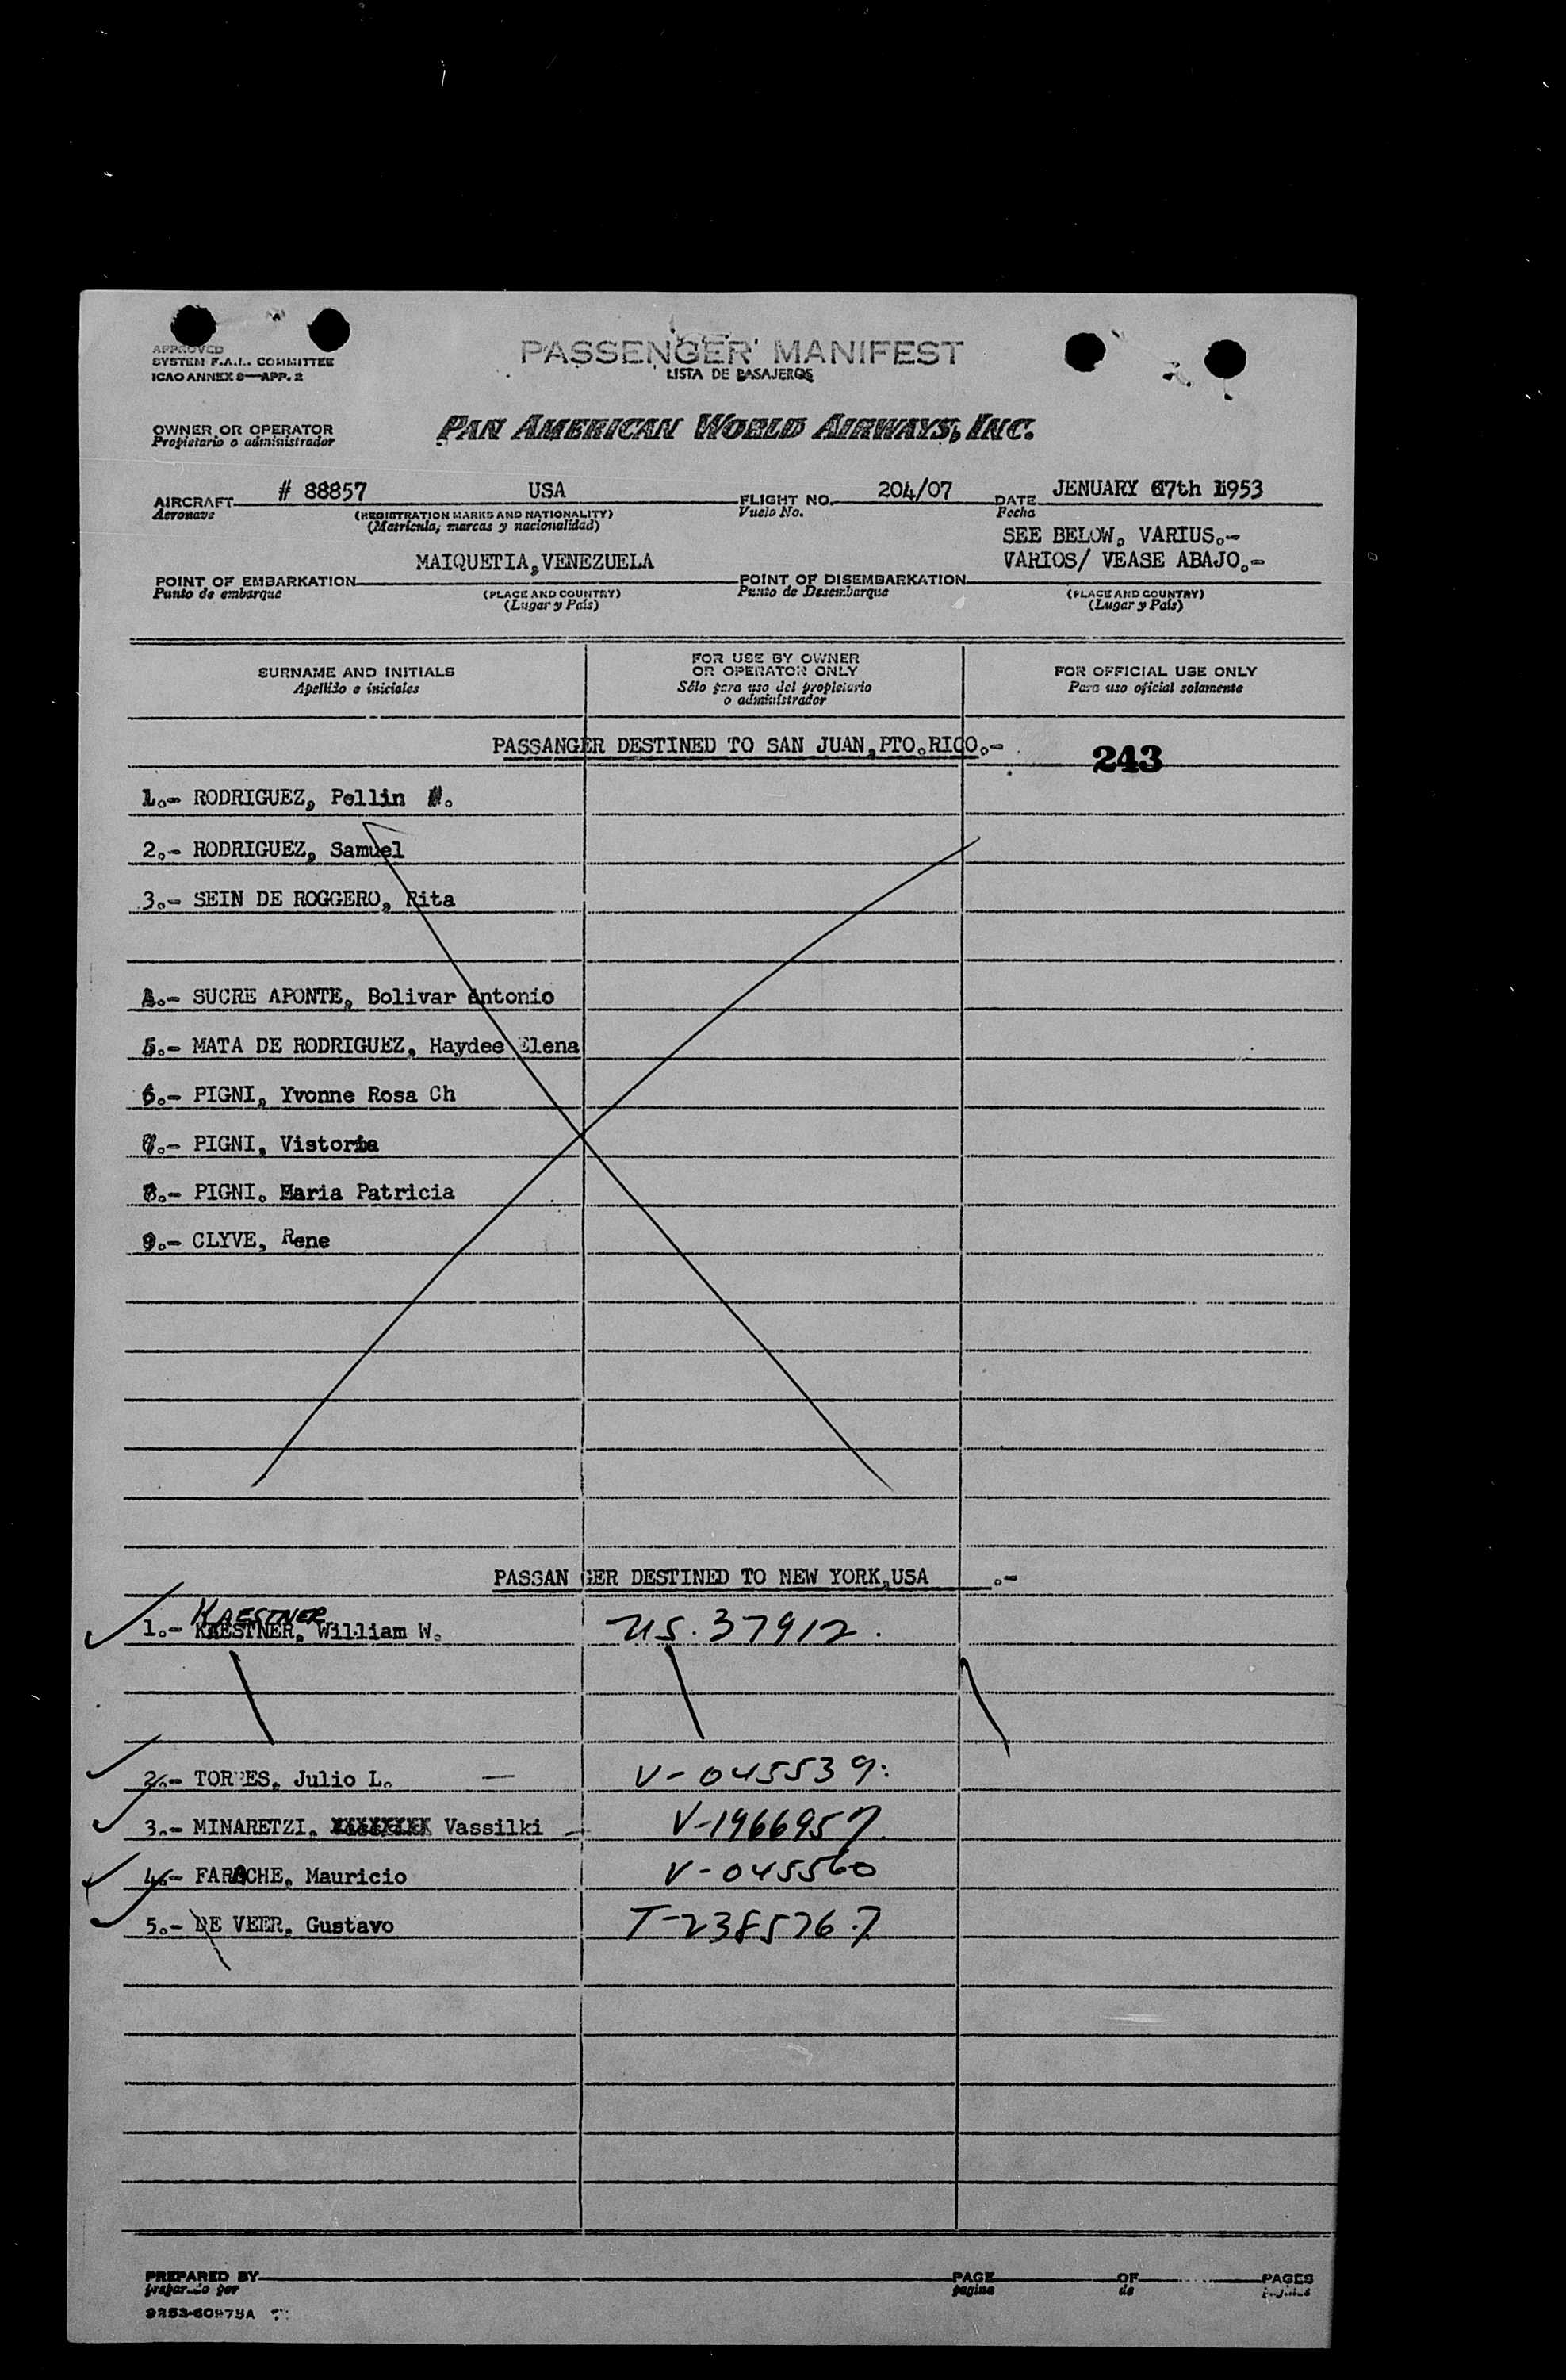 APPROVED
SYSTEM F.A.L. COMMITTEE
ICAO ANNEX 9—APP. 2
PASSENGER MANIFEST
LISTA DE PASAJEROS
OWNER OR OPERATOR
Propietario o administrador
PAN AMERICAN WORLD AIRWAYS, INC.
AIRCRAFT # 88857 USA FLIGHT NO. 204/07 DATE JENUARY 7th 1953
Aeronave (REGISTRATION MARKS AND NATIONALITY) Vuelo No. Fecha
(Matrícula, marcas y nacionalidad)
SEE BELOW, VARIUS.-
MAIQUETIA,VENEZUELA VARIOS/ VEASE ABAJO.-
POINT OF EMBARKATION POINT OF DISEMBARKATION
Punto de embarque (PLACE AND COUNTRY) Punto de Desembarque (PLACE AND COUNTRY)
(Lugar y País) (Lugar y País)
SURNAME AND INITIALS
Apellido e iniciales
FOR USE BY OWNER
OR OPERATOR ONLY
Sólo para uso del propietario
o administrador
FOR OFFICIAL USE ONLY
Para uso oficial solamente
PASSANGER DESTINED TO SAN JUAN,PTO.RICO.-
243
1.- RODRIGUEZ, Pellin
2.- RODRIGUEZ, Samuel
3.- SEIN DE ROGGERO, Rita
4.- SUCRE APONTE, Bolivar Antonio
5.- MATA DE RODRIGUEZ, Haydee Elena
6.- PIGNI, Yvonne Rosa Ch
7.- PIGNI, Vistoria
8.- PIGNI. Maria Patricia
9.- CLYVE, Rene
PASSANGER DESTINED TO NEW YORK,USA .-
KAESTNER
1.- KAESTNER, William W. US. 37912.
2.- TORRES, Julio L. — V-045539.
3.- MINARETZI, XXXXXXXX Vassilki — V-1966957.
4.- FARACHE, Mauricio V-045560
5.- DE VEER, Gustavo T-2385767
PREPARED BY PAGE OF PAGES
preparado por pagina de paginas